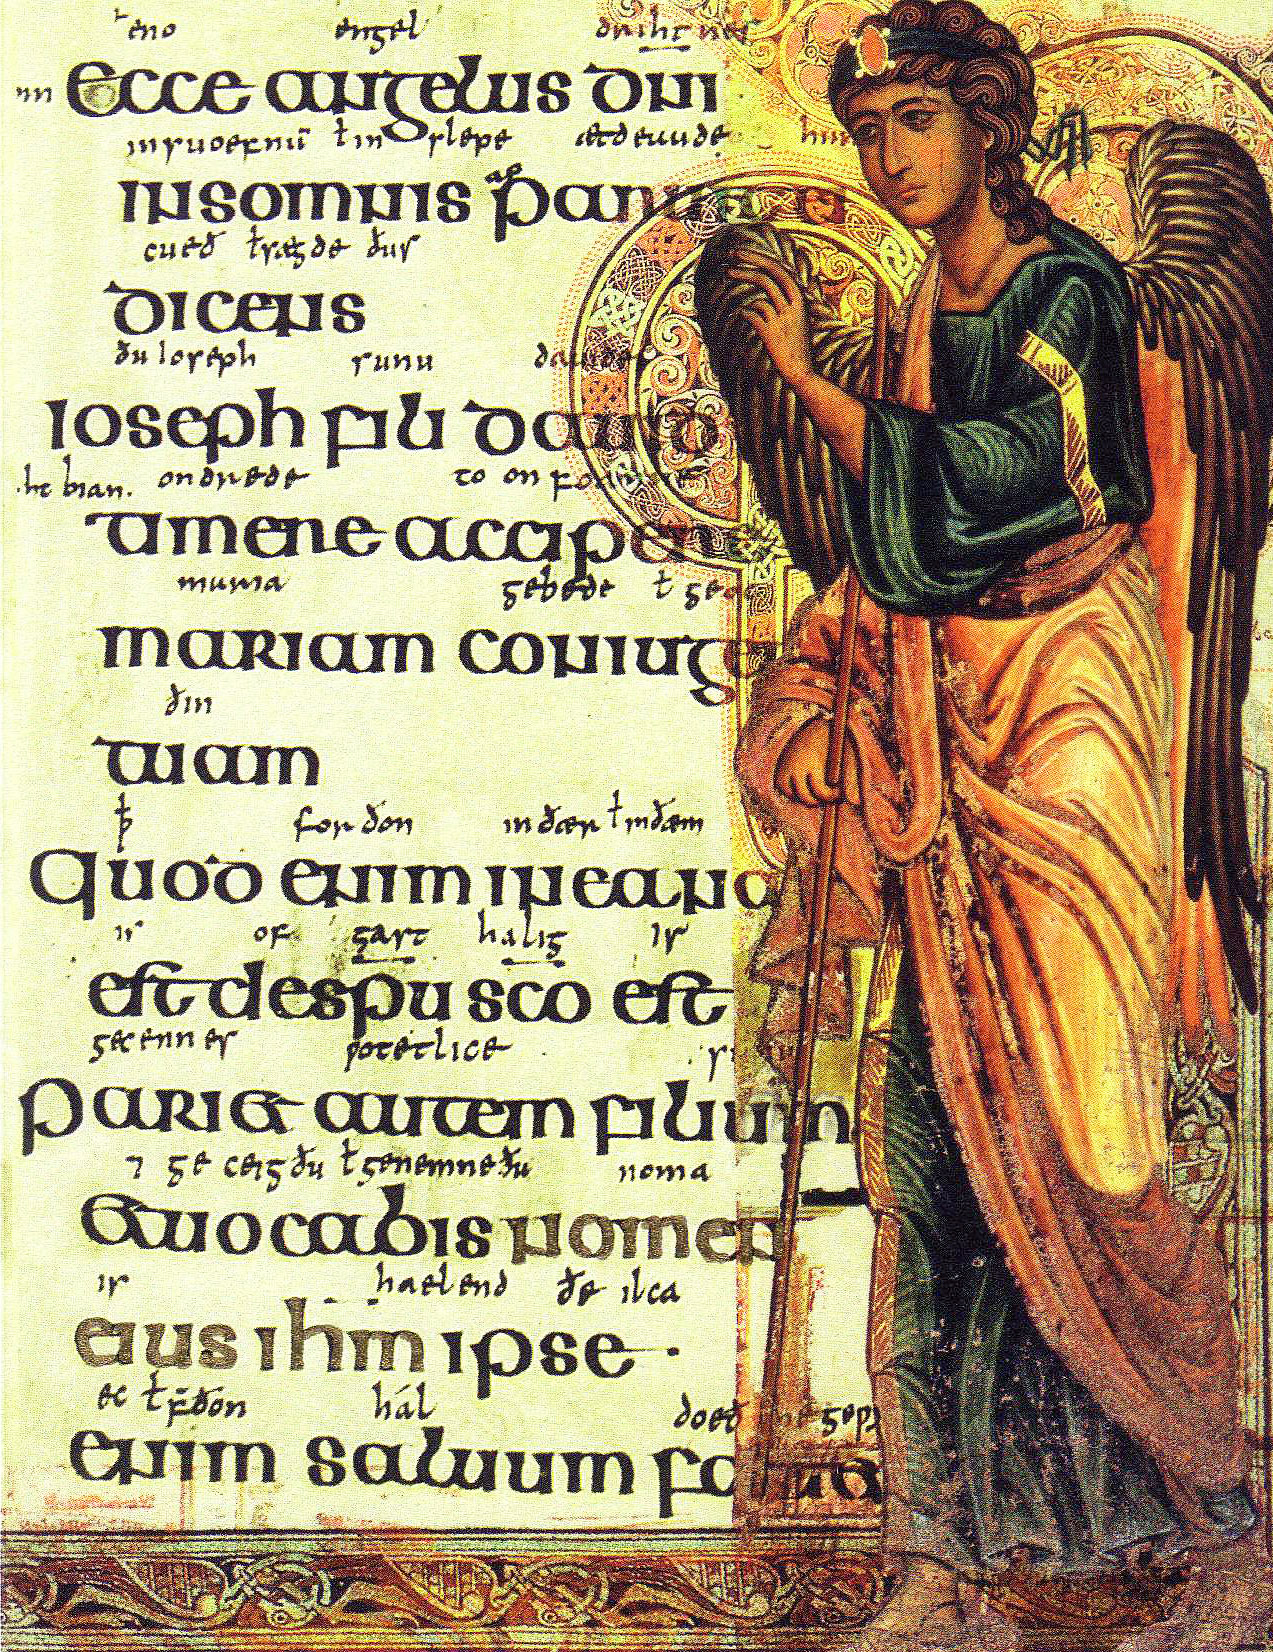 eno engel drihtnes
Ecce angelus dni
in suoefnu ł in slepe ætdeuude
insomnis ap
cueð ł sægde ðus
dicens
ðu ioseph sunu
ioseph fili david
ondrede to on
timere accipere
maria gebede ł
mariam coniuge
ðin
tuam
ꝥ forðon in ðær ł in ðæm
quod enim in ea na
is of gast halig is
est de spu sco est
gecennes sotetlice
pariet autem filium
⁊ geceigðu ł genemneðu noma
et vocabis nomen
is haelend ðe ilca
eius ihm ipse ·
ec ł fðon hál doeð
enim salvum